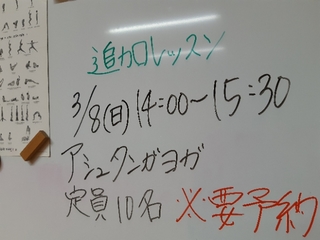 追加レッスン
3/8(日)14:00~15:30
アシュタンガヨガ
定員10名 ※要予約